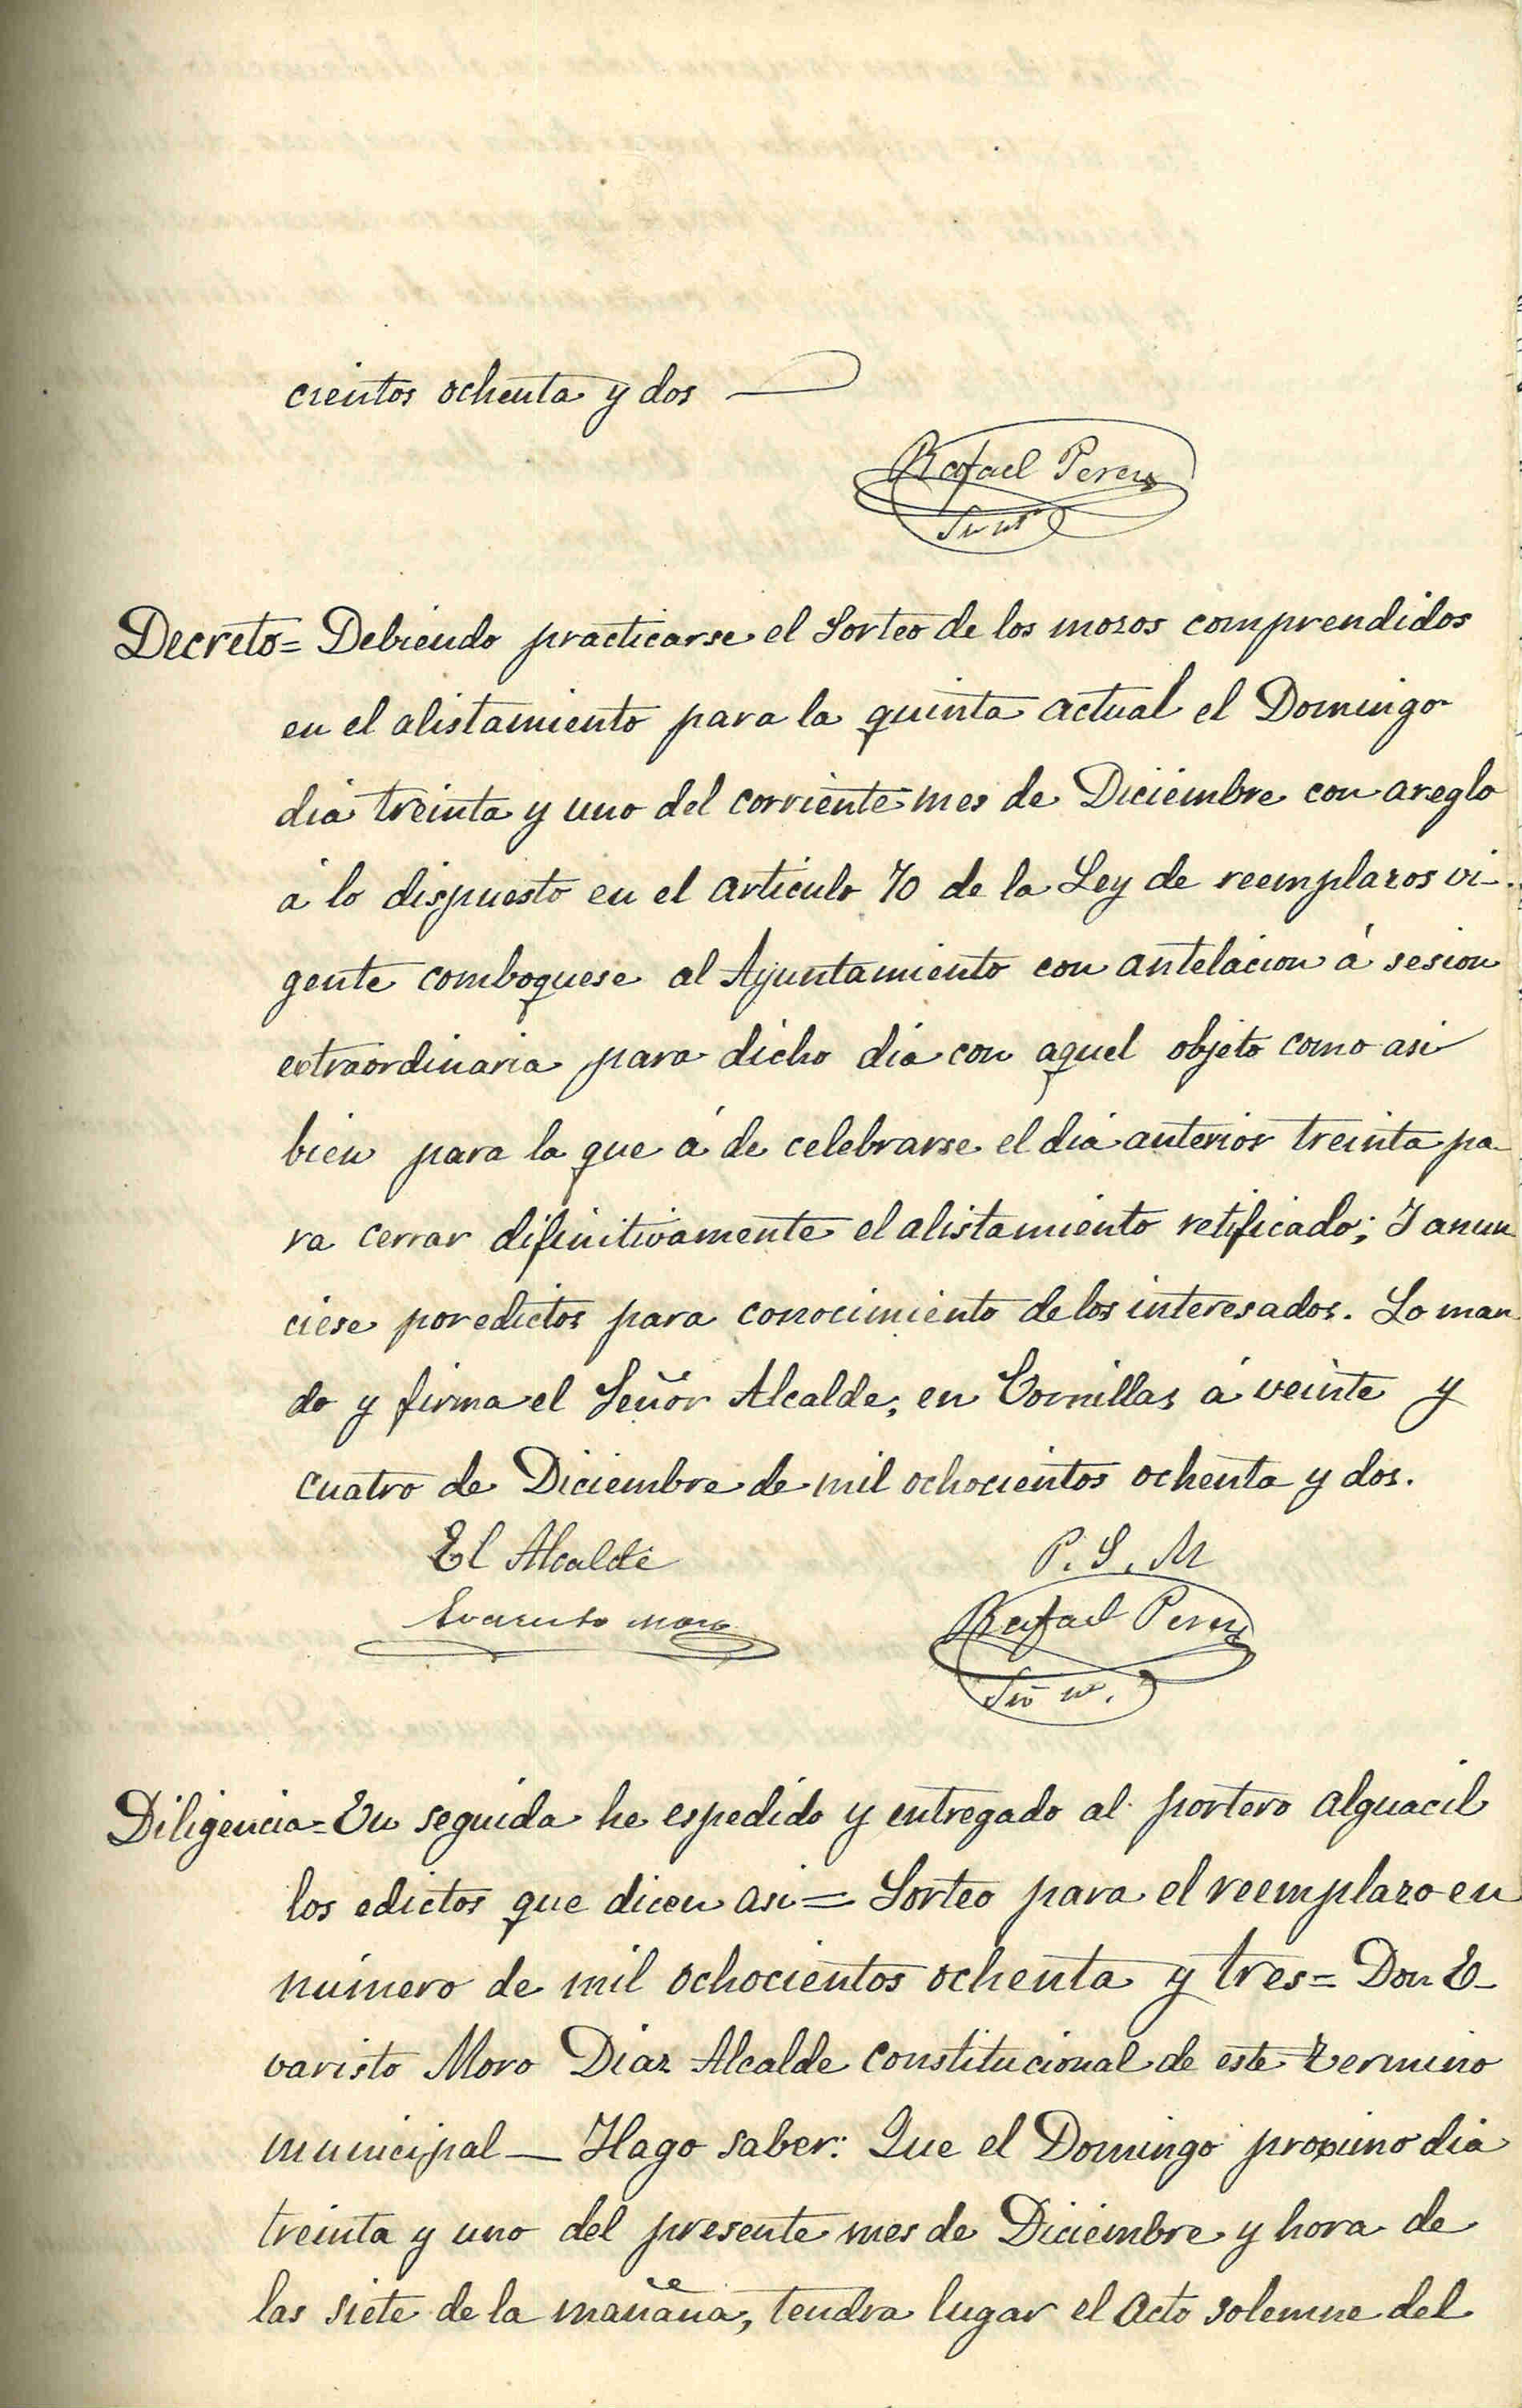 cientos ochenta y dos
Rafael Perez
Srio
Decreto = Debiendo practicarse el Sorteo de los mozos comprendidos
en el alistamiento para la quinta actual el Domingo
dia treinta y uno del corriente mes de Diciembre con areglo
á lo dispuesto en el articulo 70 de la Ley de reemplazos vi-
gente comboquese al Ayuntamiento con antelacion á sesion
extraordinaria para dicho dia con aquel objeto como asi
bien para la que á de celebrarse el dia anterior treinta pa-
ra cerrar difinitivamente el alistamiento retificado; Y anun
ciese por edictos para conocimiento de los interesados. Lo man
do y firma el Señor Alcalde, en Cornillas á veinte y
cuatro de Diciembre de mil ochocientos ochenta y dos.
El Alcalde P. S. M
Evaristo Moro Rafael Perez
Srio
Diligencia = En seguida he espedido y entregado al portero alguacil
los edictos que dicen asi = Sorteo para el reemplazo en
número de mil ochocientos ochenta y tres = Don E-
varisto Moro Diaz Alcalde constitucional de este termino
municipal — Hago saber: Que el Domingo proximo dia
treinta y uno del presente mes de Diciembre y hora de
las siete de la mañana, tendra lugar el acto solemne del